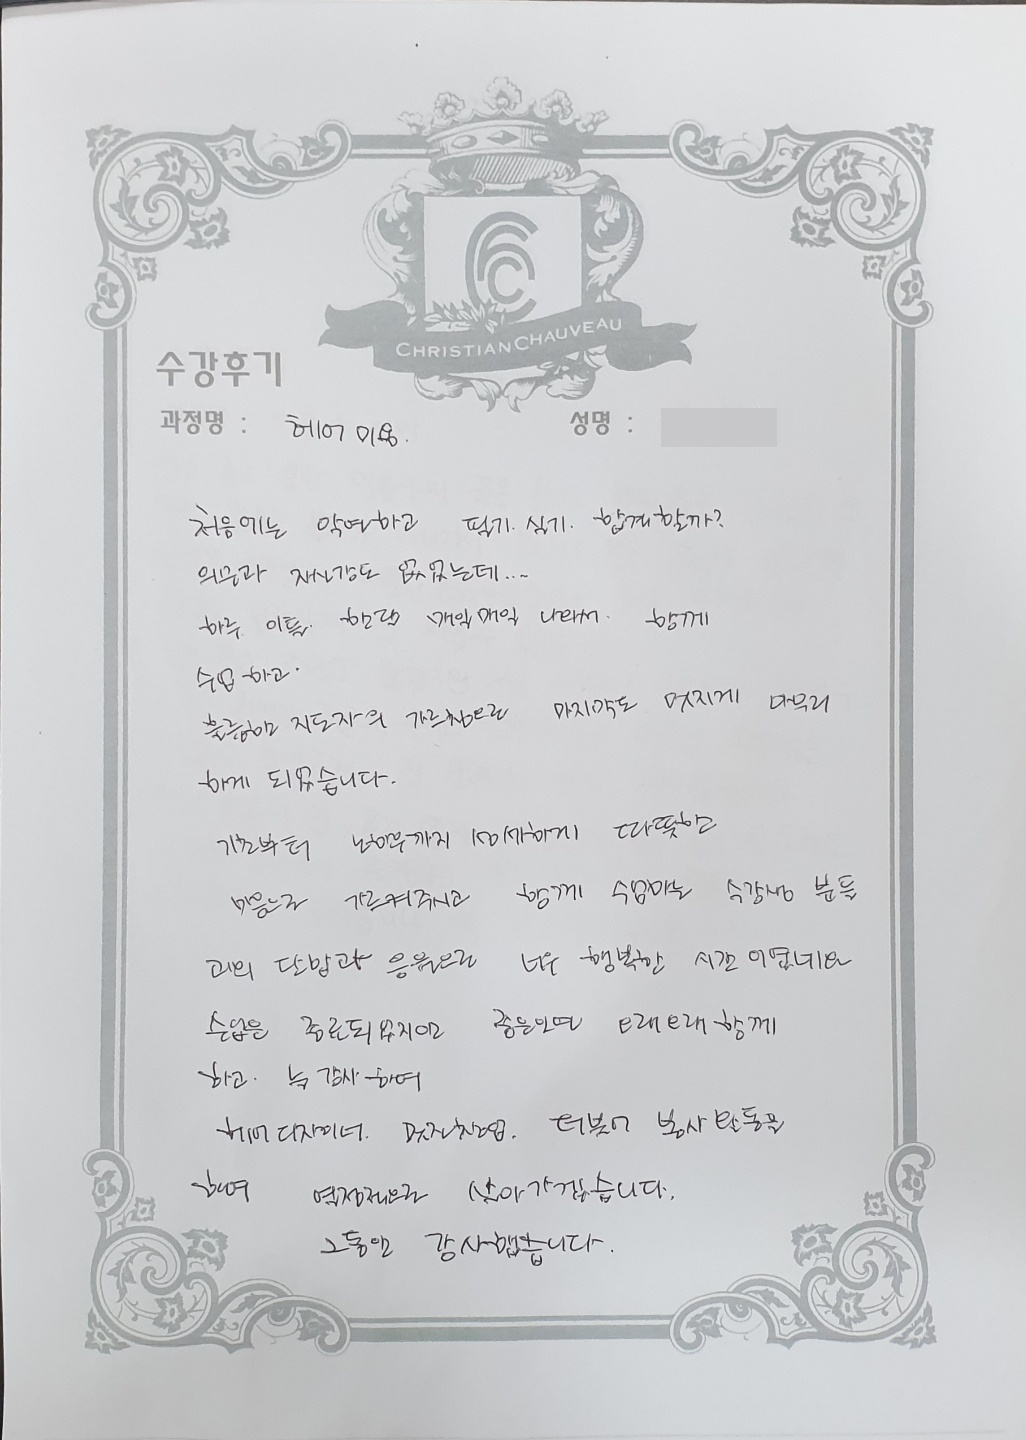 CHRISTIAN CHAUVEAU
수강후기
과정명 : 헤어 미용. 성명 :
처음에는 막연하고 필기. 실기. 합격할까?
의문과 자신감도 없었는데....
하루 이틀. 한달 매일매일 나와서. 함께
수업 하고.
훌륭한 지도자의 가르침으로 마지막도 멋지게 마무리
하게 되었습니다.
기초부터 너무까지 섬세하게 따뜻한
마음으로 가르쳐주시고 함께 수업하는 수강생 분들
과의 단합과 응원으로 너무 행복한 시간 이였네요
수업은 종료되었지만 좋은인연 오래오래 함께
하고. 늘 감사하며
헤어 디자이너. 멋진창업. 더불어 봉사 활동을
하며 열정적으로 살아가겠습니다.
그동안 감사했습니다.